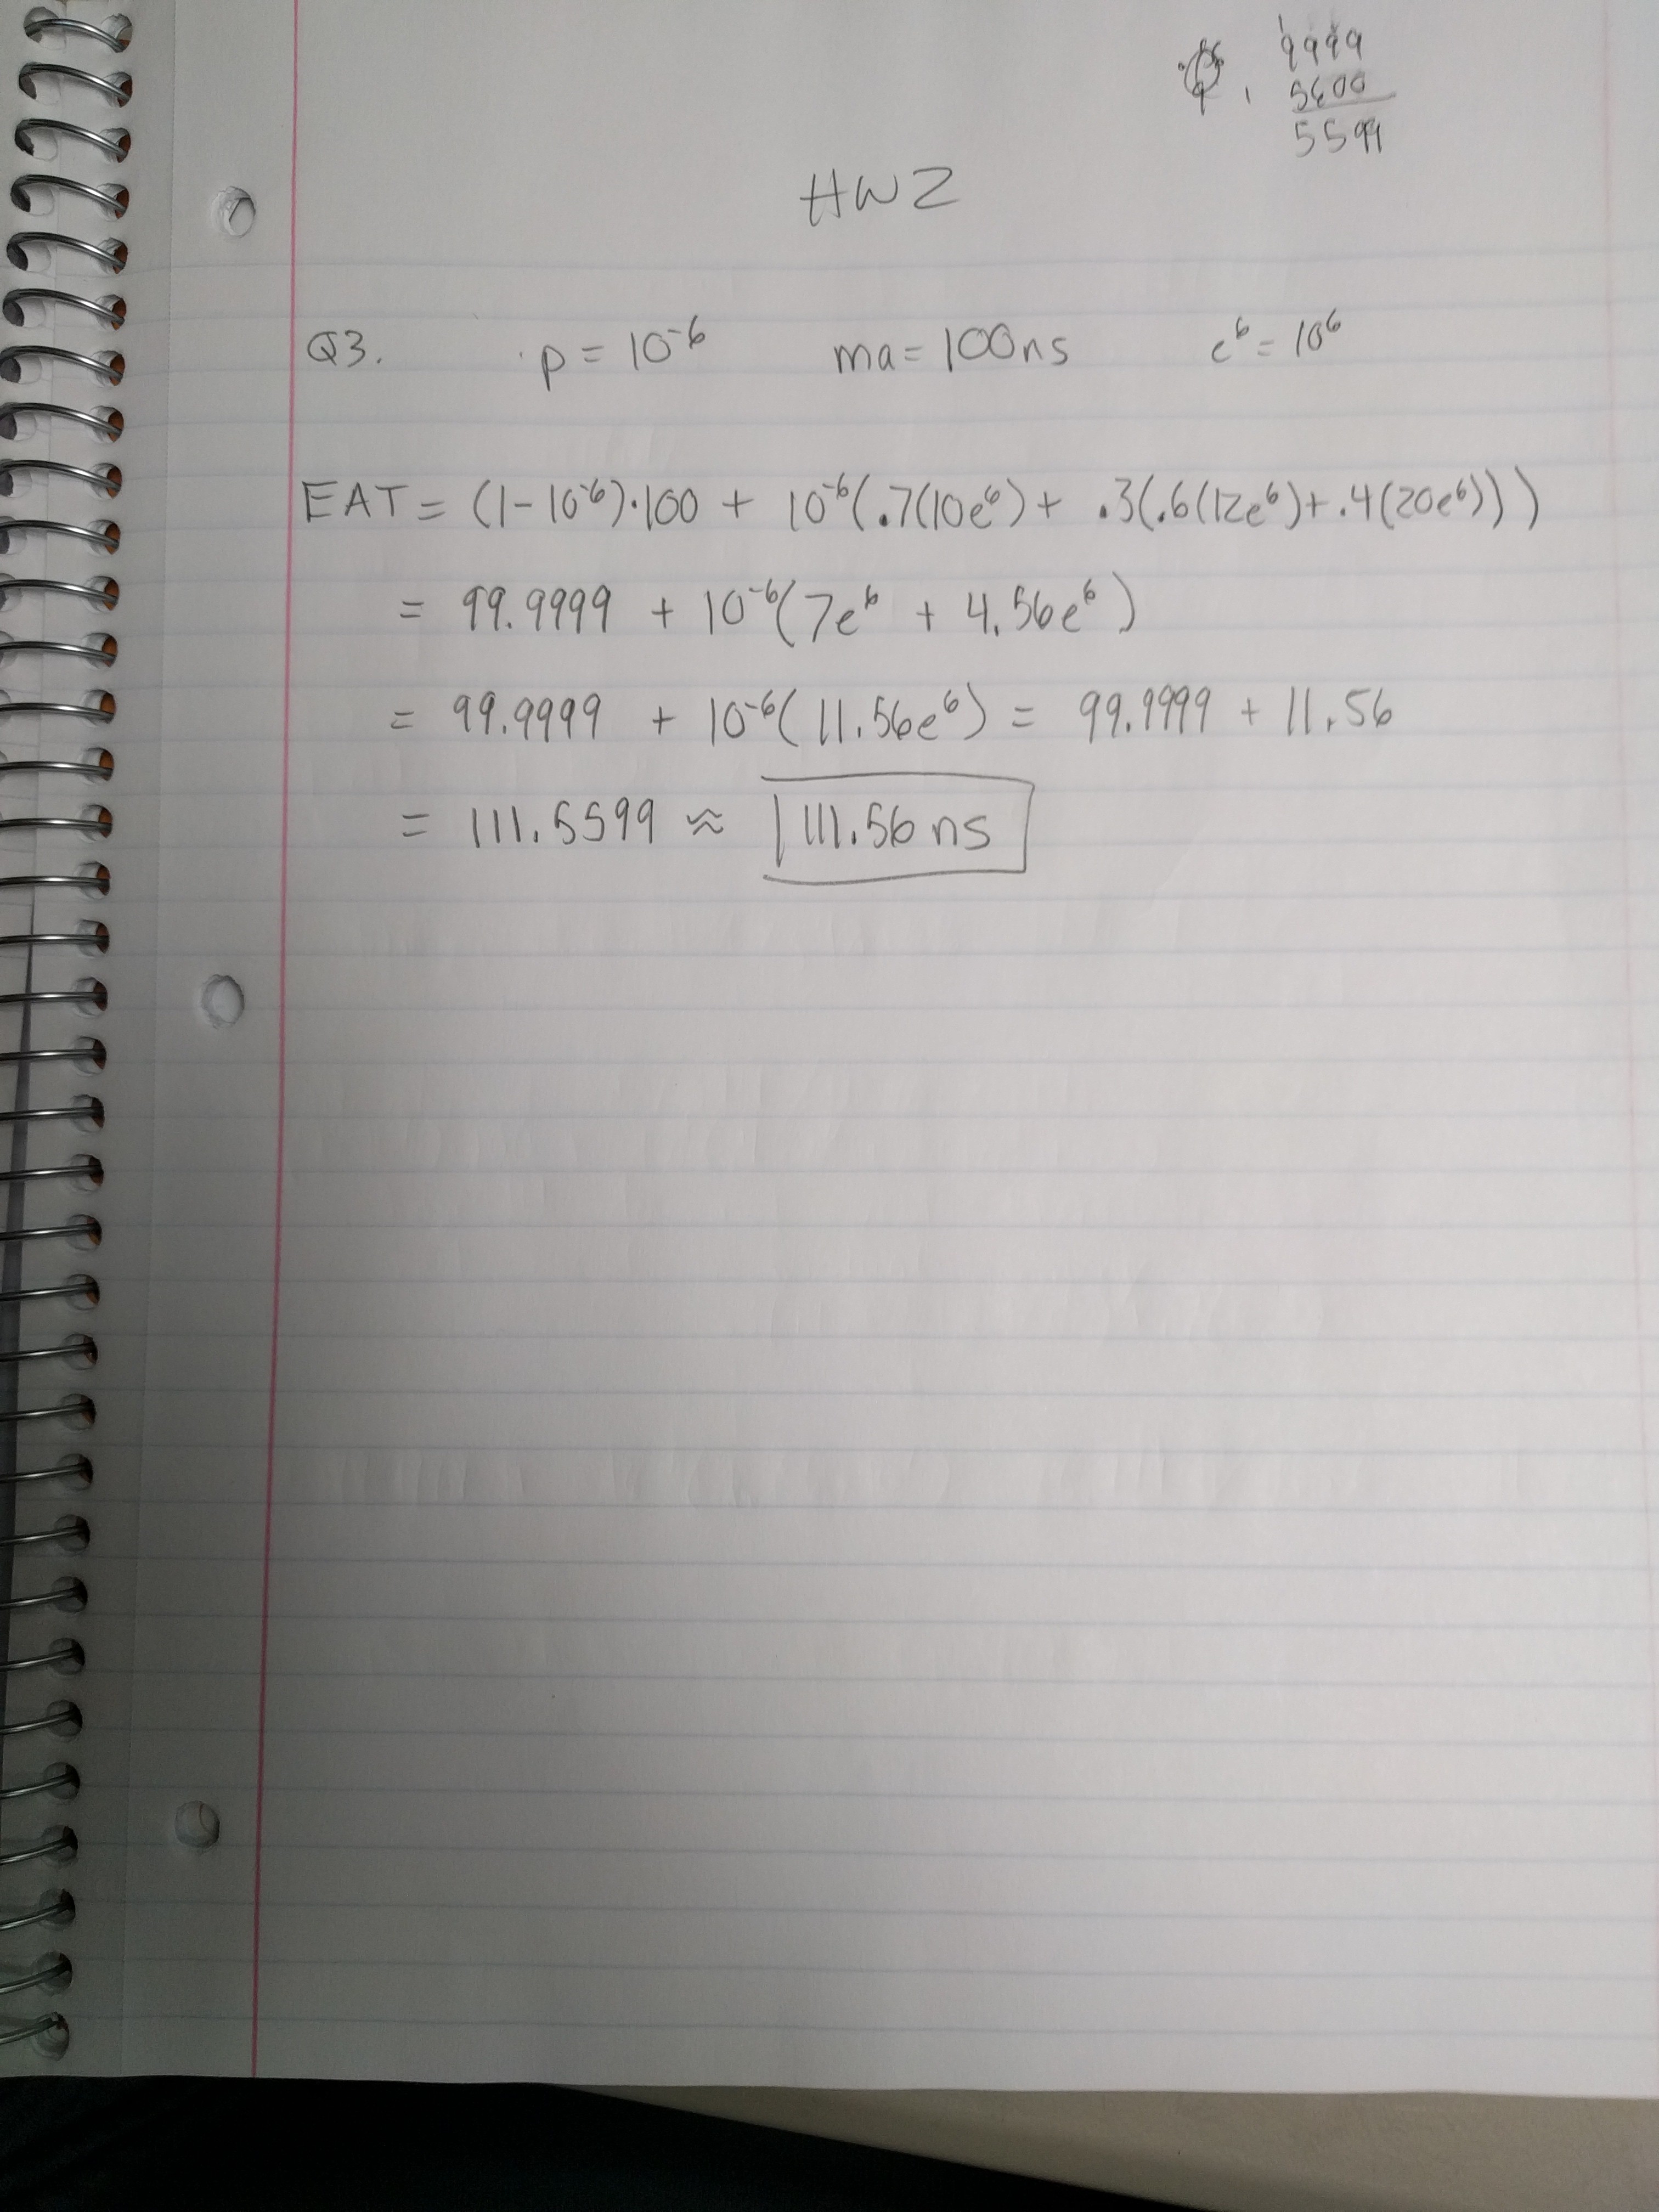 9999
5600
5599
HW2
Q3. p = 10⁻⁶ ma = 100ns e⁶ = 10⁶
EAT = (1-10⁻⁶)·100 + 10⁻⁶(.7(10e⁶) + .3(.6(12e⁶) + .4(20e⁶)))
= 99.9999 + 10⁻⁶(7e⁶ + 4.56e⁶)
= 99.9999 + 10⁻⁶(11.56e⁶) = 99.9999 + 11.56
= 111.5599 ≈ 111.56 ns